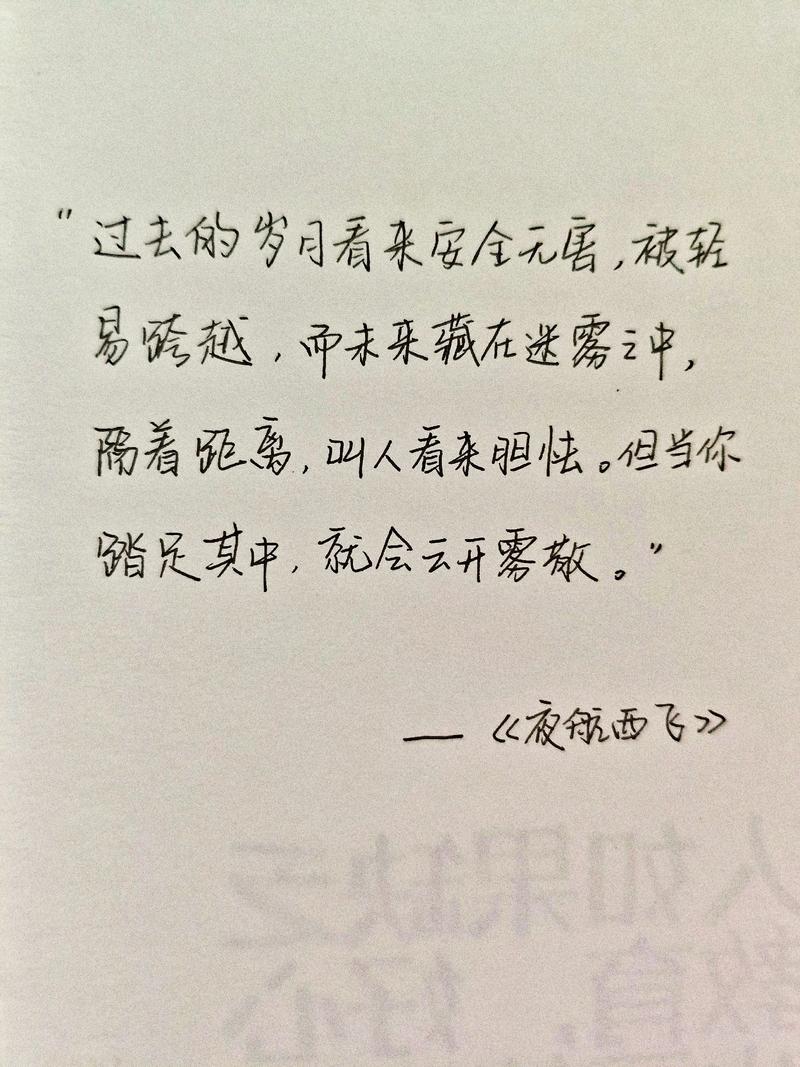 "过去的岁月看来安全无害,被轻
易跨越,而未来藏在迷雾之中,
隔着距离,叫人看来胆怯。但当你
踏足其中,就会云开雾散。"
—《夜航西飞》
人如果缺乏
教育,好心